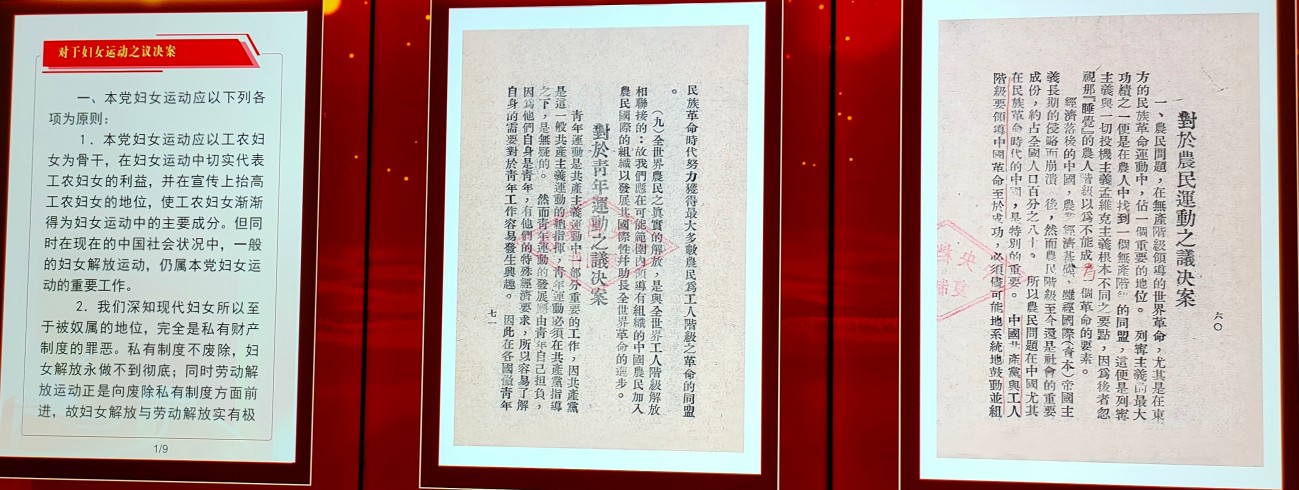 对于妇女运动之议决案
一、本党妇女运动应以下列各
项为原则：
1．本党妇女运动应以工农妇
女为骨干，在妇女运动中切实代表
工农妇女的利益，并在宣传上抬高
工农妇女的地位，使工农妇女渐渐
得为妇女运动中的主要成分。但同
时在现在的中国社会状况中，一般
的妇女解放运动，仍属本党妇女运
动的重要工作。
2．我们深知现代妇女所以至
于被奴属的地位，完全是私有财产
制度的罪恶。私有制度不废除，妇
女解放永做不到彻底；同时劳动解
放运动正是向废除私有制度方面前
进，故妇女解放与劳动解放实有极
1/9
民族革命時代努力獲得最大多數農民爲工人階級之革命的同盟
。
（九）全世界農民之真實的解放，是與全世界工人階級解放
相聯接的：故我們應在可能範圍內領導有組織的中國農民加入
農民國際的組織以發展其國際性幷助長全世界革命的進步。
對於青年運動之議决案
青年運動是共產主義運動中一部分重要的工作，因共產黨
是這一般共產主義運動的總指揮，青年運動必須在共產黨指導
之下，是無疑的。然而青年運動的發展 由青年自己担負，
因爲他們自身是青年，有他們的特殊經濟要求，所以容易了解
自身的需要對於青年工作容易發生興趣。因此在各國 青年
七一
對於農民運動之議决案
一、農民問題，在無產階級領導的世界革命，尤其是在東
方的民族革命運動中，佔一個重要的地位。列寗主義 最大
功積之一便是在農人中找到一個無產階 的同盟，這便是列寗
主義與一切投機主義孟維克主義根本不同之要點，因爲後者忽
視那『睡覺』的農人階級以爲不能成 一個革命的要素。
經濟落後的中國，農 經濟基礎，雖經國際（資本）帝國主
義長期的侵略而崩潰 後，然而農民階級至今還是社會的重要
成份，約占全國人口百分之八十。所以農民問題在中國尤其
在民族革命時代的中國，是特別的重要。中國共產黨與工人
階級要領導中國革命至於成功，必須儘可能地系統地鼓動並組
六〇